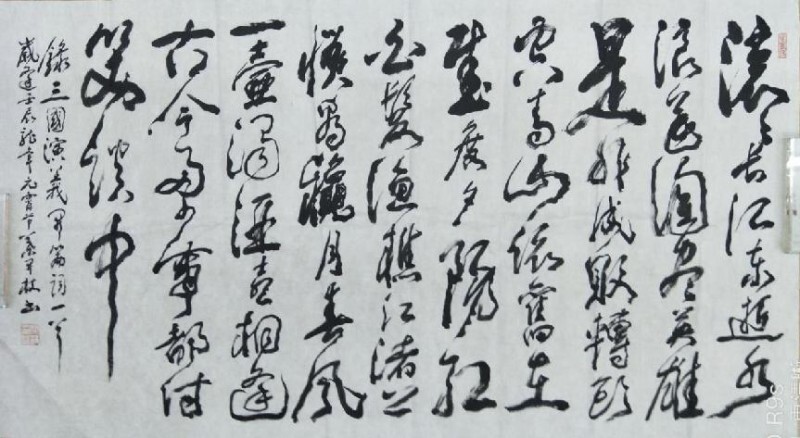 滚滚长江东逝水
浪花淘尽英雄
是非成败轉頭
空青山依舊在
幾度夕陽红
白髮渔樵江渚上
惯看秋月春风
一壶濁酒喜相逢
古今多少事都付
笑谈中
錄三國演義開篇词一首
歲逢壬辰龍年元宵节